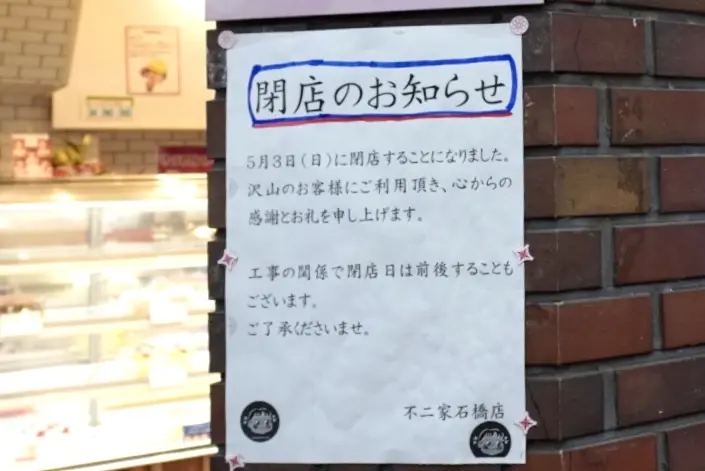 閉店のお知らせ
5月3日(日)に閉店することになりました。
沢山のお客様にご利用頂き、心からの
感謝とお礼を申し上げます。
工事の関係で閉店日は前後することも
ございます。
ご了承くださいませ。
不二家石橋店